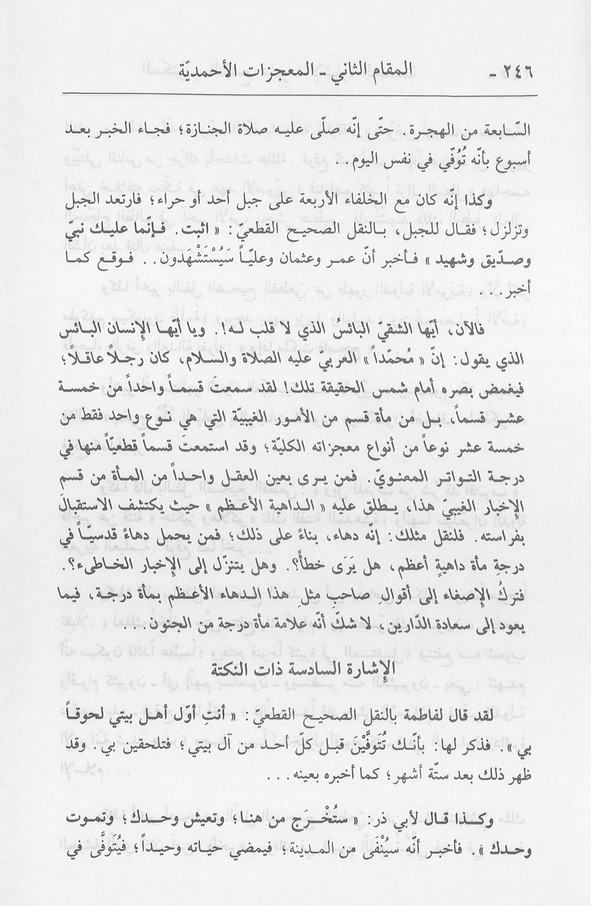 ٢٤٦ - المقام الثاني - المعجزات الأحمديّة
السّابعة من الهجرة. حتّى إنّه صلّى عليه صلاة الجنازة؛ فجاء الخبر بعد
أسبوع بأنّه تُوُفّي في نفس اليوم..
وكذا إنّه كان مع الخلفاء الأربعة على جبل أحد أو حراء؛ فارتعد الجبل
وتزلزل؛ فقال للجبل، بالنقل الصحيح القطعيّ: « اثبت. فإنّما عليك نبيّ
وصدّيق وشهيد » فأخبر أنّ عمر وعثمان وعليّاً سَيُسْتَشْهَدون.. فوقع كما
أخبر...
فالآن، أيّها الشقيّ البائسُ الذي لا قلب له!. ويا أيّها الإنسان البائس
الذي يقول: إنّ « مُحمّداً » العربيّ عليه الصلاة والسلام، كان رجلاً عاقلاً؛
فيغمض بصره أمام شمس الحقيقة تلك! لقد سمعتَ قسماً واحداً من خمسة
عشر قسماً، بل من مأة قسم من الأمور الغيبيّة التي هي نوع واحد فقط من
خمسة عشر نوعاً من أنواع معجزاته الكليّة؛ وقد استمعتَ قسماً قطعيّاً منها في
درجة التواتر المعنويّ. فمن يرى بعين العقل واحداً من المأة من قسم
الإخبار الغيبيّ هذا، يطلق عليه « الداهية الأعظم » حيث يكتشف الاستقبالَ
بفراسته. فلنقل مثلك: إنّه دهاء، بناءً على ذلك؛ فمن يحمل دهاءً قدسيّاً في
درجةِ مأة داهيةٍ أعظم، هل يَرَى خطأً؟. وهل يتنزّل إلى الإخبار الخاطىء؟.
فتركُ الإصغاء إلى أقوالِ صاحبِ مثلِ هذا الدهاء الأعظم بمأة درجة، فيما
يعود إلى سعادة الدّارين، لا شكّ أنّه علامة مأة درجة من الجنون...
الإشارة السادسة ذات النكتة
لقد قال لفاطمة بالنقل الصحيح القطعيّ: « أنتِ أوّل أهل بيتي لحوقاً
بي ». فذكر لها: بأنّك تُتَوفَّيْنَ قبل كلّ أحد من آل بيتي؛ فتلحقين بي. وقد
ظهر ذلك بعد ستّة أشهر؛ كما أخبره بعينه...
وكذا قال لأبي ذر: « ستُخْرَج من هنا؛ وتعيش وحدك؛ وتموت
وحدك ». فأخبر أنّه سيُنْفَى من المدينة؛ فيمضي حياته وحيداً؛ فيُتَوفَّى في